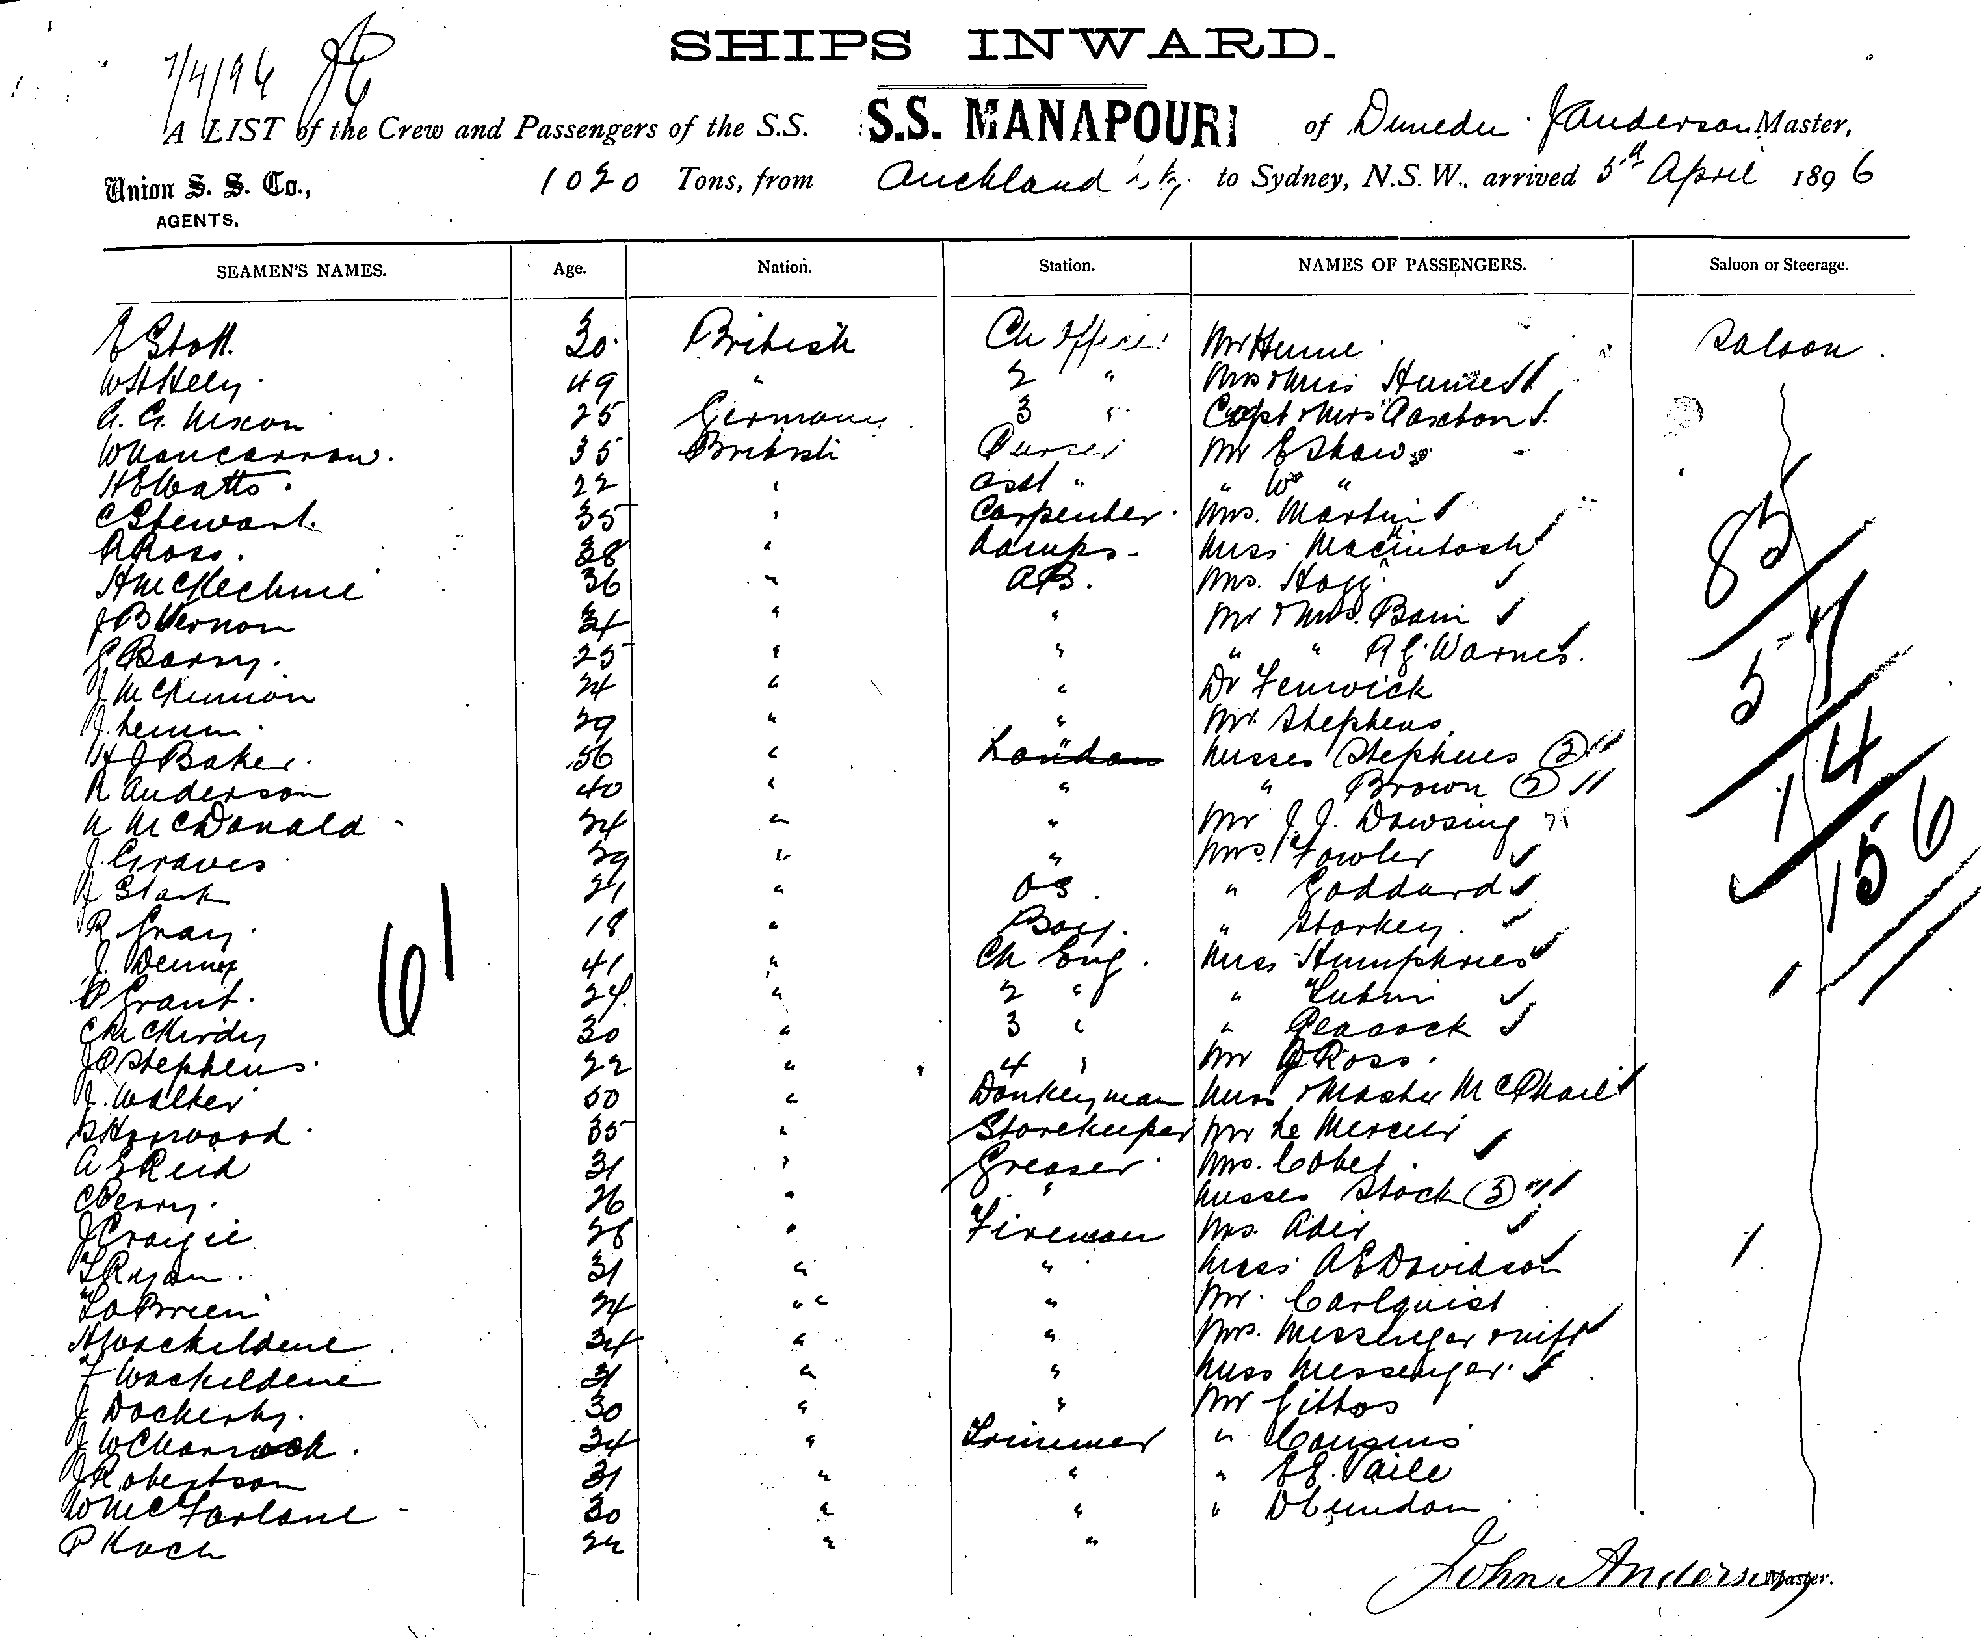 SHIPS INWARD.
7/4/96
A LIST of the Crew and Passengers of the S.S. S.S. MANAPOURI of Dunedin J Anderson Master,
Union S. S. Co., 1020 Tons, from Auckland to Sydney, N.S.W., arrived 5th April 1896
AGENTS.
SEAMEN'S NAMES. Age. Nation. Station. NAMES OF PASSENGERS. Saloon or Steerage.
E Stott. 30 British Ch Officer Mr Hume Saloon
W H Hely 49 " 2 " Mrs & Miss Hume
A. G. Nixon 25 German 3 " Capt & Mrs Paxton
W Nancarrow. 35 British Purser Mr E Shaw
H E Watts 22 " asst " " Wm "
C Stewart. 35 " Carpenter Mrs. Martin
R Ross. 38 " Lamps Miss Macintosh
H McKechnie 36 " AB. Mrs. Hogg
J B Vernon 34 " " Mr & Mrs Bain
G Barry. 25 " " " " R G. Warnes.
J McKinnon 24 " " Dr Fenwick
J. 29 " " Mr Stephens
H J Baker. 56 " Misses Stephens 2
R Anderson 40 " " " Brown 2
N McDonald 24 " " Mr J. J. Dowsing
J. Graves 29 " " Mrs Fowler
J Stark 21 " OS " Goddard
R Gray 18 " Boy. " Starkey
J. Denney 41 " Ch Eng. Miss Humphries
P Grant. 24 " 2 " "
C McKirdy 30 " 3 " " Peacock
J C Stephens 22 " 4 " Mr Ross.
J. Walker 50 " Donkeyman Miss & Master McPhail
Horwood 35 " Storekeeper Mr Le Mercier
A E Reid 31 " Greaser Mrs. Cobet
C Berry. 26 " " Misses Stock 3
J Craigie 28 " Fireman Mrs. Adir
T Ryan 31 " " Miss A E Davidson
T O Brien 24 " " Mr. Carlquist
H Wackildene 34 " " Mrs. Messenger & inft
F Wackildene 31 " " Miss Messenger
J Dockerty. 30 " " Mr Gittos
J W Charnock. 34 " Trimmer " Cousins
J Robertson 31 " " " E E. Vaile
W McFarlane 30 " " " D Cundon
P Koch 22 " "
61
83
57
14
156
John Anderson Master.